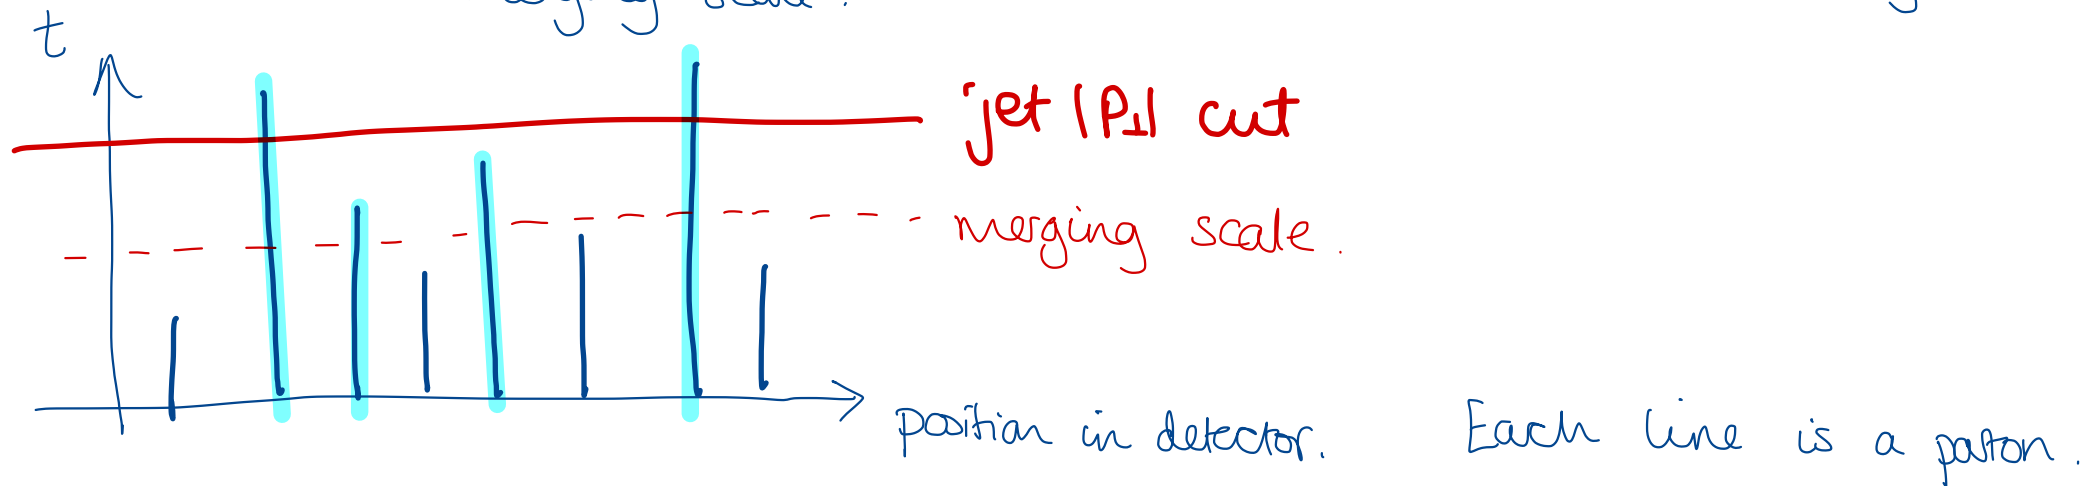 merging scale.
t
jet |P⊥| cut
merging scale.
position in detector.
Each line is a parton.